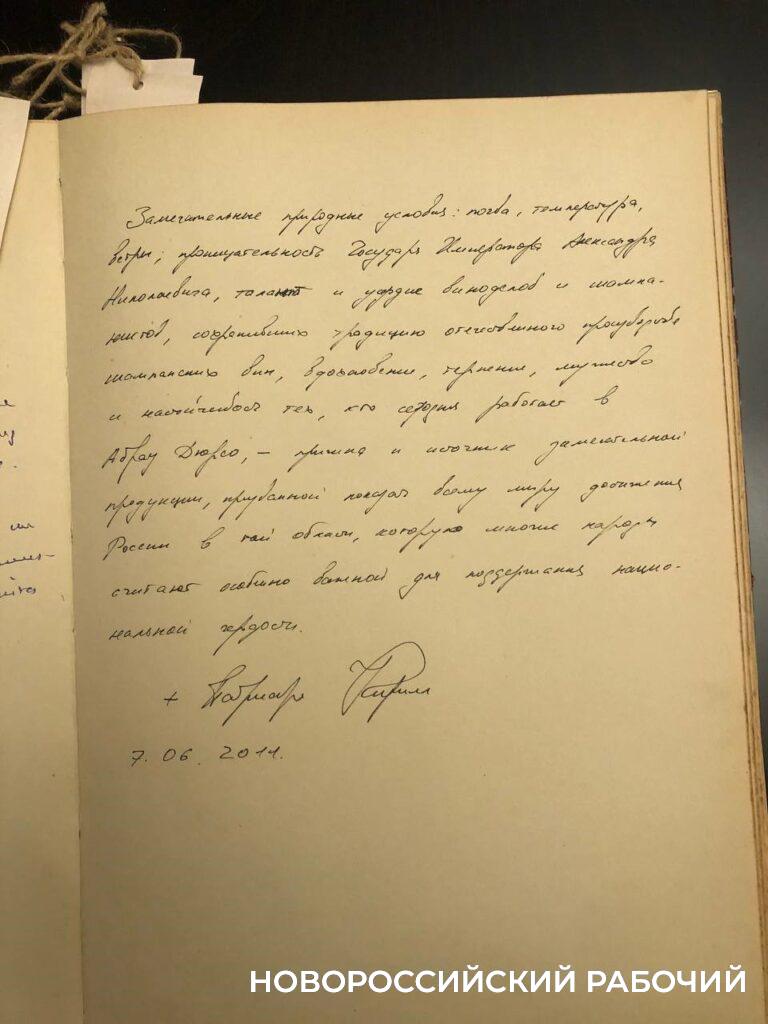 Замечательные природные условия: почва, температура,
ветры; проницательность Государя Императора Александра
Николаевича, талант и усердие виноделов и шампа-
нистов, сохранивших традицию отечественного производства
шампанских вин, вдохновение, терпение, мужество
и настойчивость тех, кто сегодня работает в
Абрау Дюрсо, – причина и источник замечательной
продукции, призванной показать всему миру достижения
России в той области, которую многие народы
считают особенно важной для поддержания нацио-
нальной гордости.
+ Патриарх Кирилл
7.06.2011.
НОВОРОССИЙСКИЙ РАБОЧИЙ